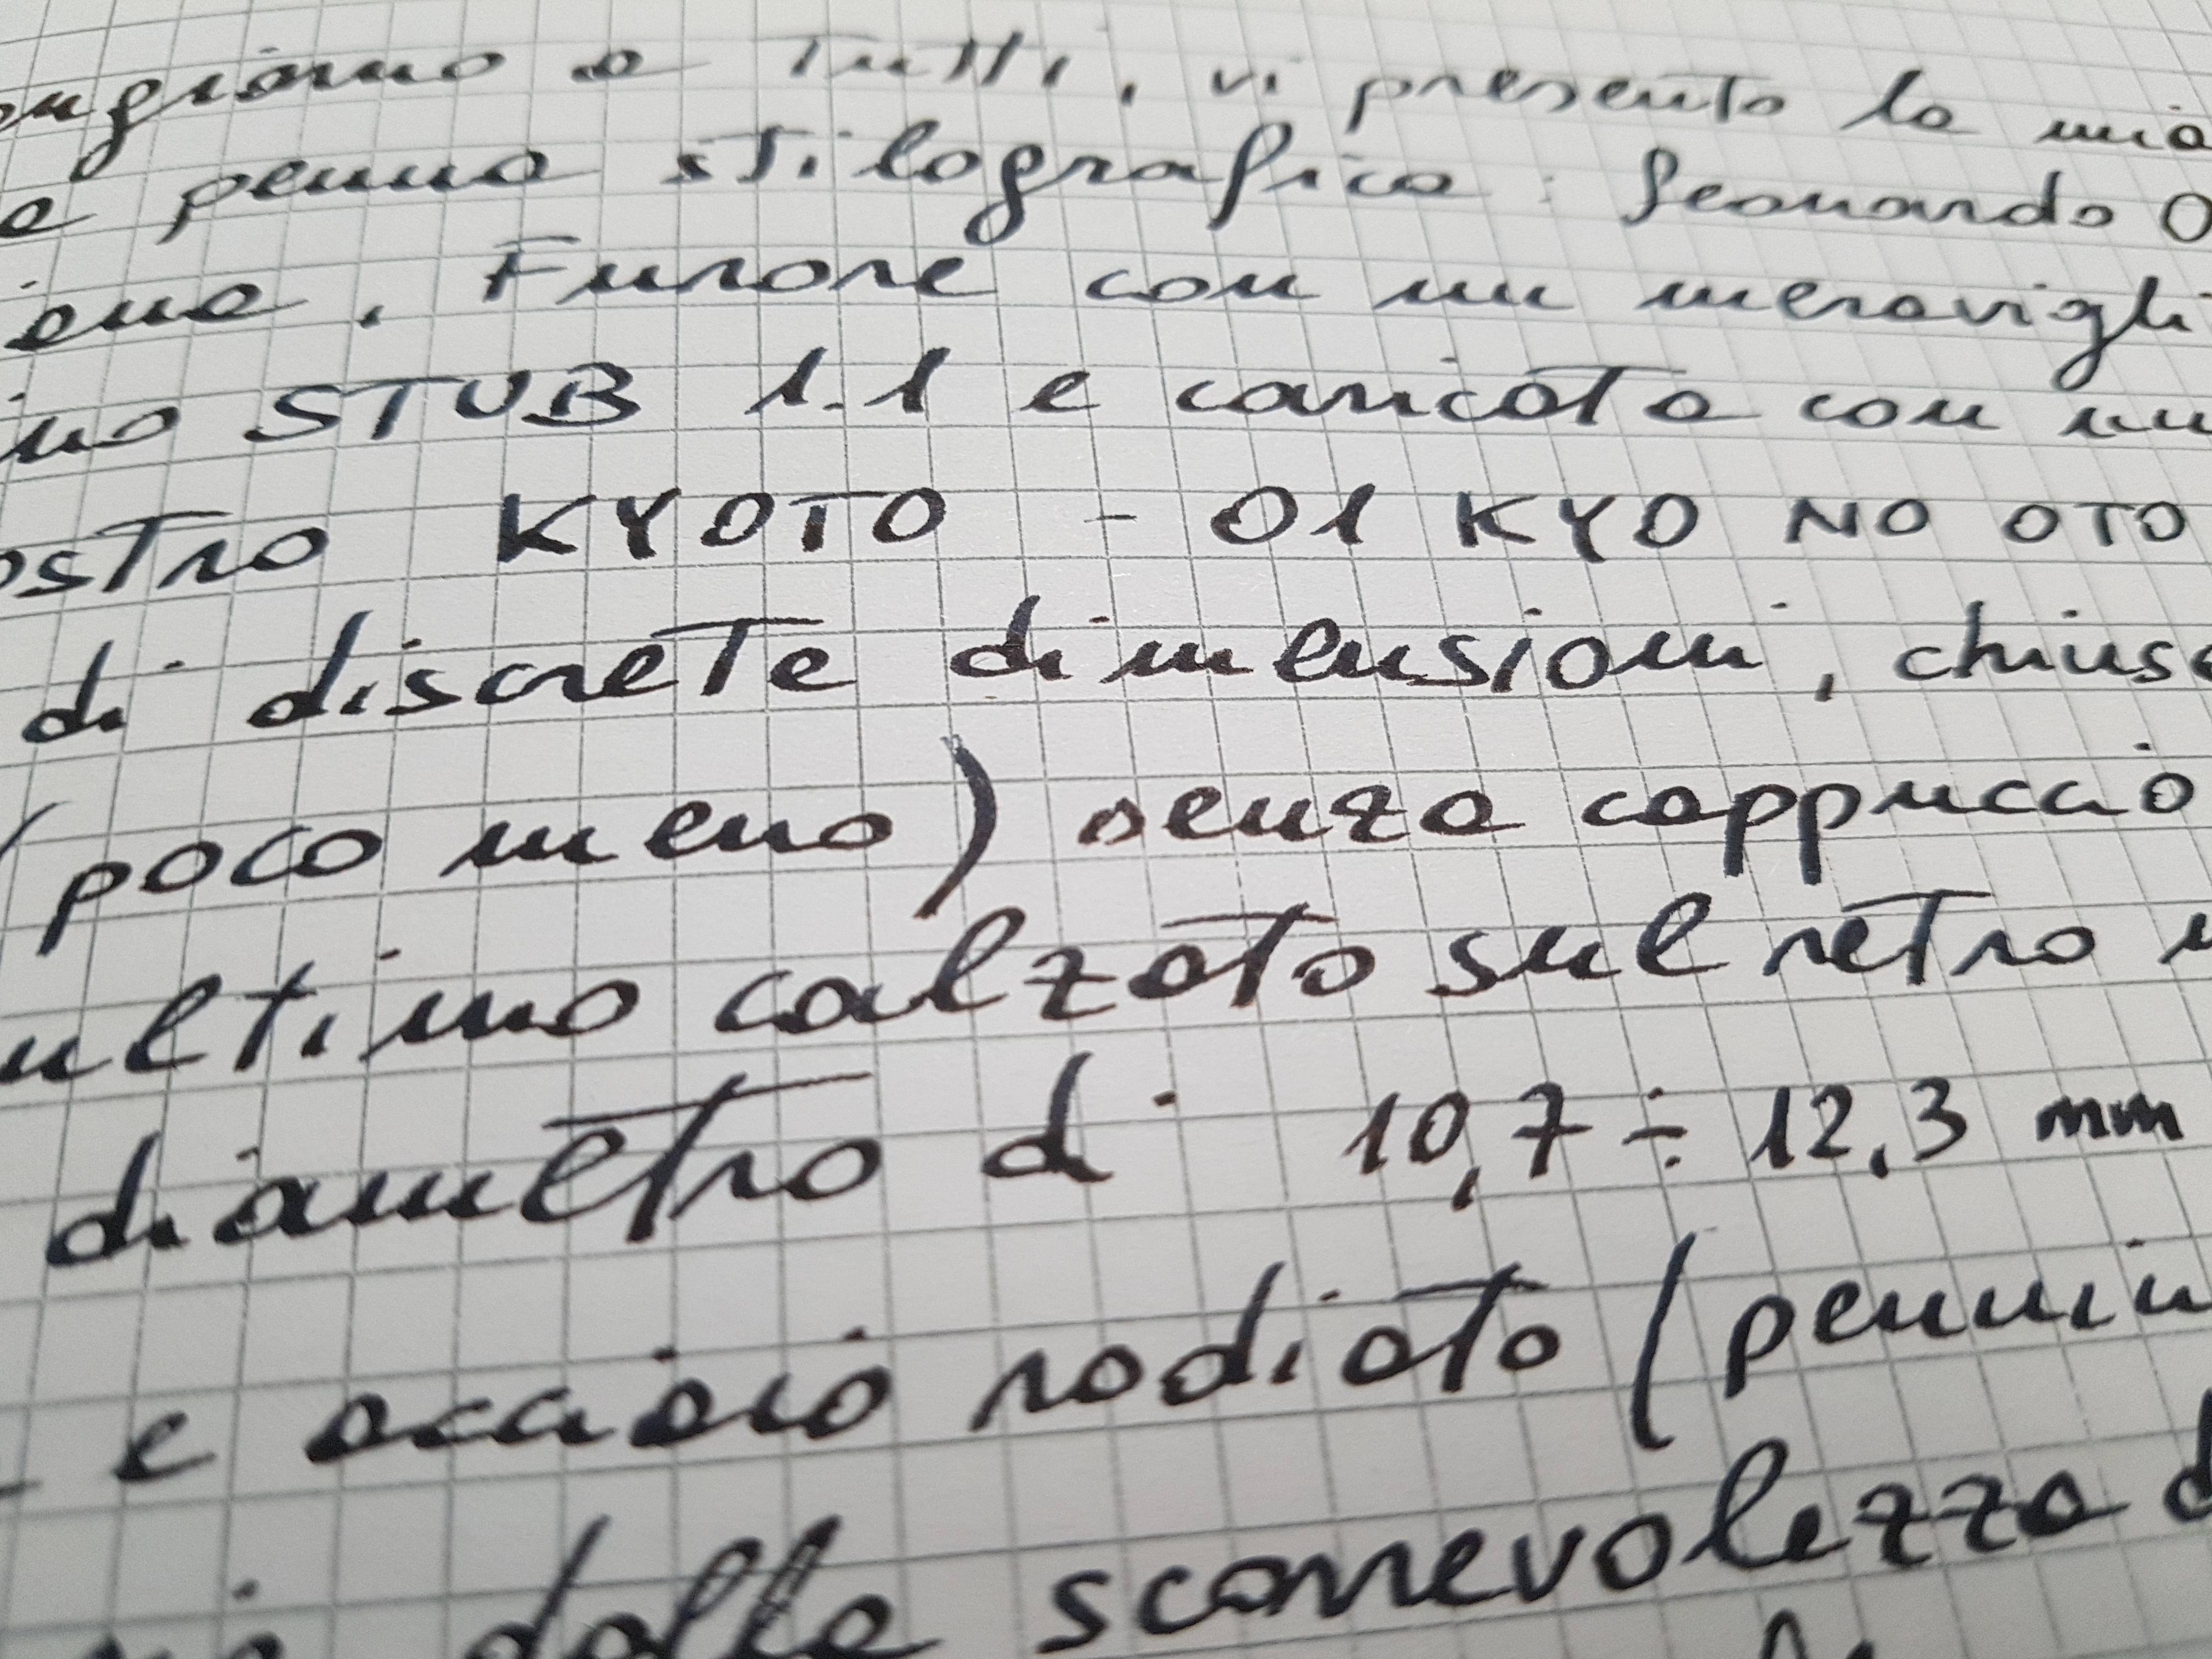 ongiorno a Tutti, vi presento la mia
e penna stilografica: Leonardo O
iena, Furore con un meravigli
ino STUB 1.1 e caricata con un
ostro KYOTO - 01 KYO NO OTO
di discrete dimensioni, chiusa
(poco meno) senza cappuccio
ultimo calzato sul retro
diametro di 10,7 ÷ 12,3 mm
e acciaio rodiato (pennin
dalla scorrevolezza d